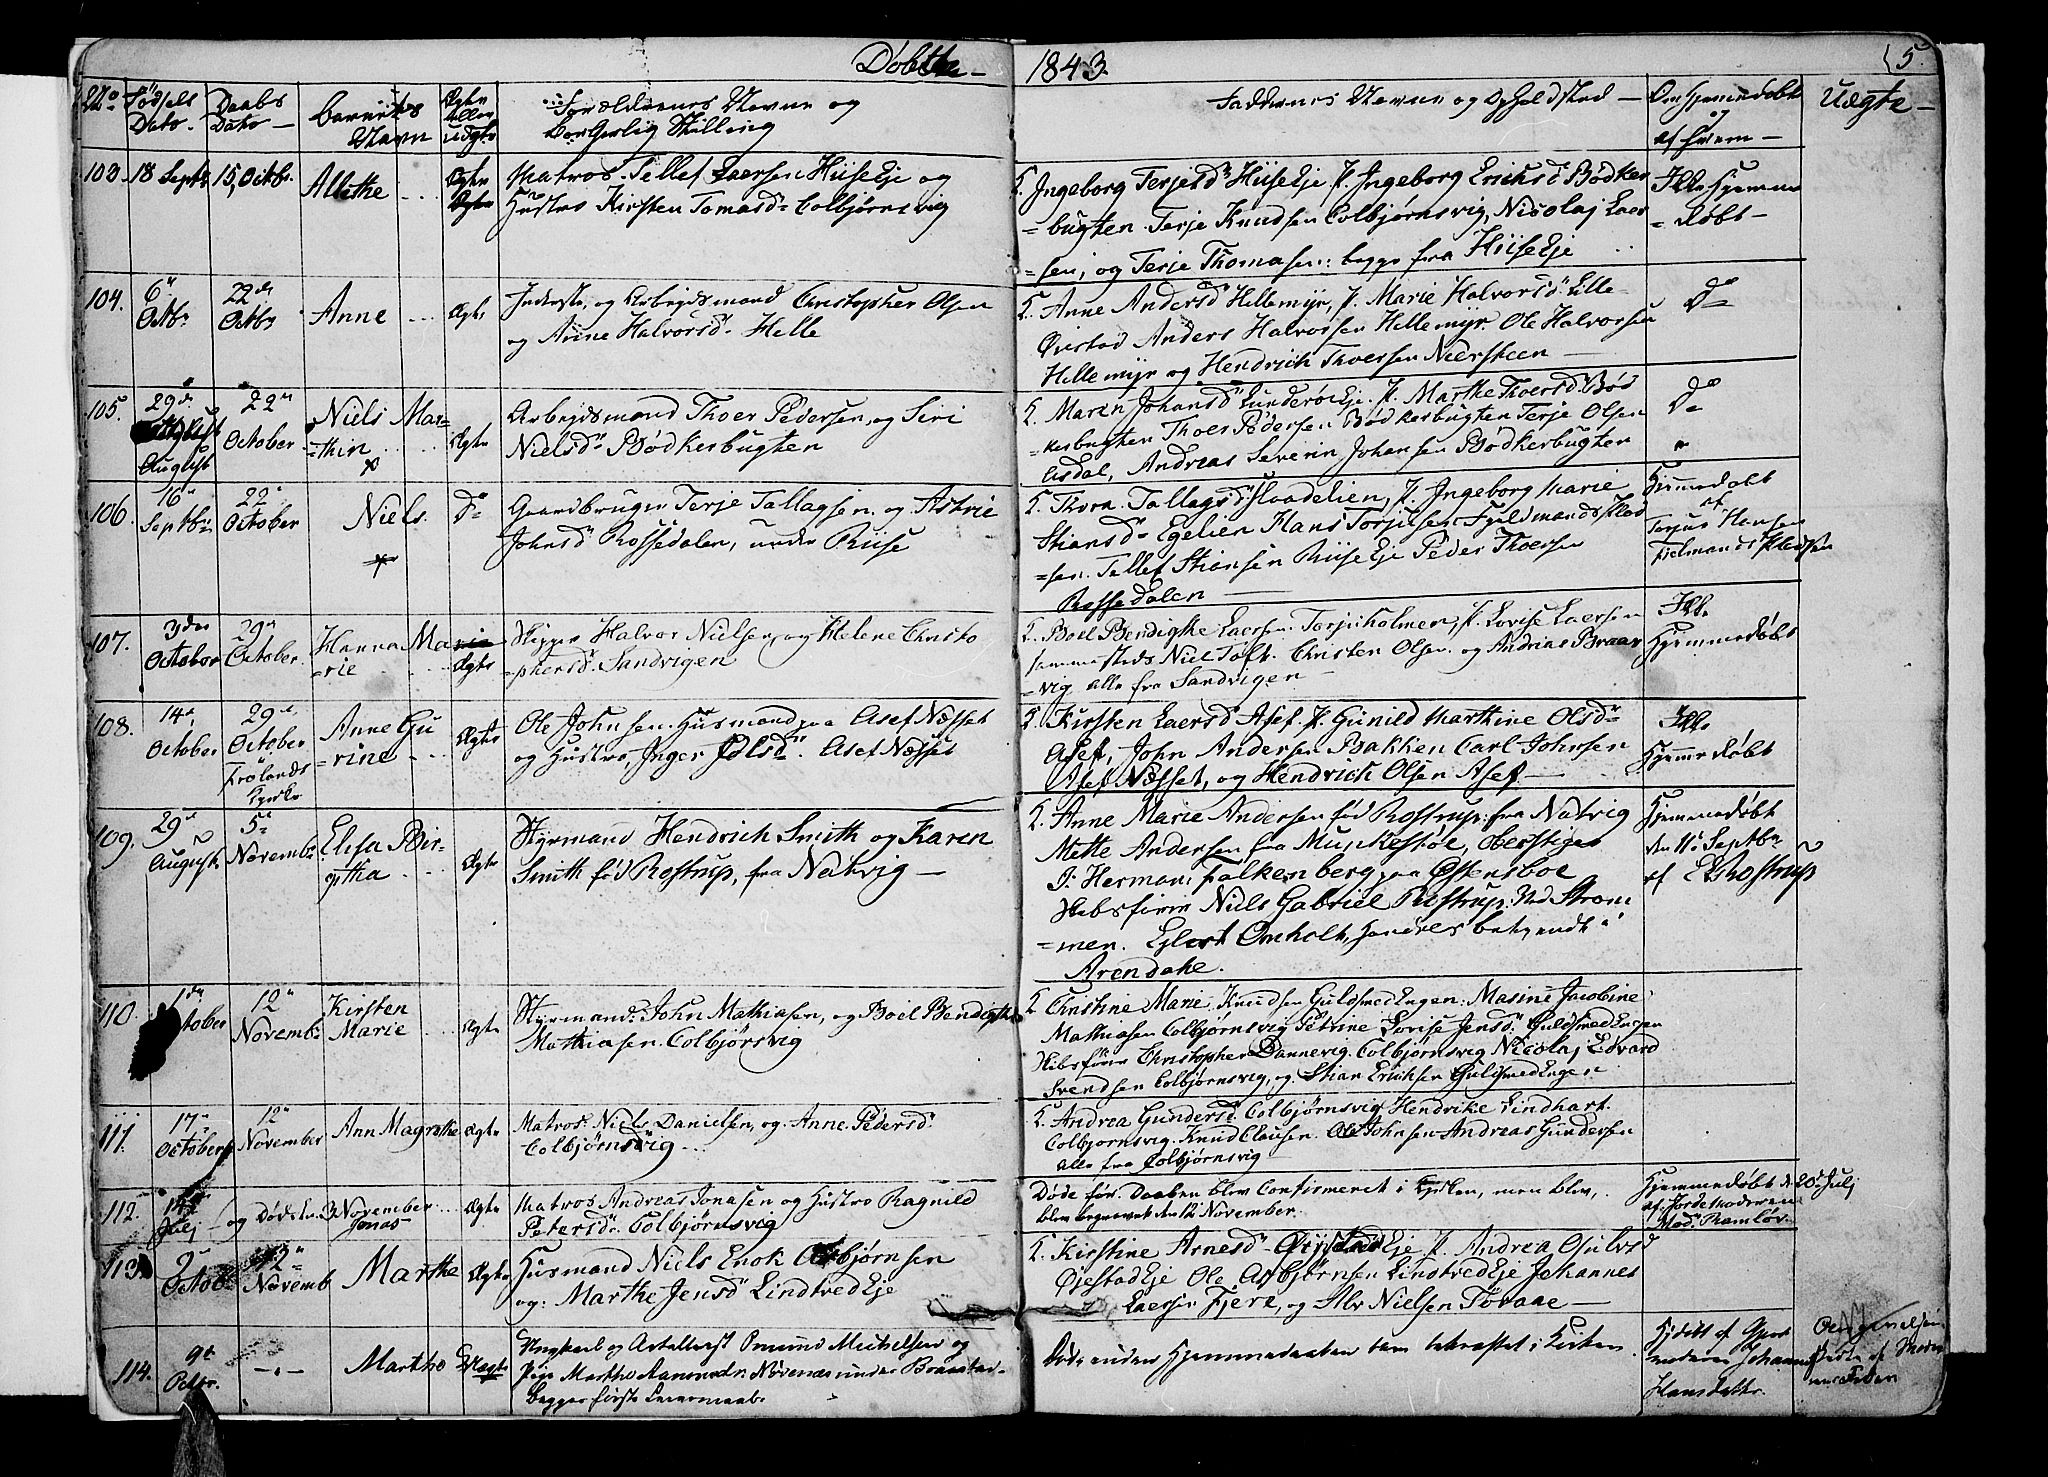 Døbte — 1843. 5.
No Fødsels Dato. Daabs Dato — Barnets Navn Ægte eller uægte Forældrenes Navne og Borgerlig Stilling Faddernes Navne og Opholdsted — Om Hjemmedøbt og af hvem — Uægte —
103 18 Septb 15, Octbr. Alethe Ægte Matros Tellef Laersen Hiisøeje og
Hustro Kirsten Tomasd= Colbjørnsvig
Ingeborg Terjesd Hiiseeje P. Ingeborg Ericksd Bødker
=bugten Terje Knudsen Colbjørnsvig, Nicolaj Laer
=sen, og Terje Thomasen: begge fra Hiiseeje
Ikke hjemme
=døbt —
104. 6" Octbr 22de Octbr Anne Ægte Inderste, og Arbejdsmand Christopher Olsen
og Anne Halvorsd. Helle
Anne Andersd Hellemyr, P. Marie Halvorsd. Lille=
Øiestad Anders Halvorsen Hellemyr Ole Halvorsen
Hellemyr og Hendrich Thorsen Neersteen —
Do
105. 29de August 22de October Niels Mar=
=thin Ægte Arbejdsmand Thoer Pedersen, og Siri
Nielsd= Bødkerbugten
Maren Johansd Lunderøeje. P. Marthe Thoersd Bød
kerbugten Thoer Pedersen Bødkerbugten Terje Olsen
Asdal, Andreas Severin Johansen Bødkerbugten
Do
106. 16" Septbr 22" October Niels. Do Gaardbruger Terje Tallagsen og Astrie
Johnsd Rossedalen, under Riise
Thora Tallagsd, P. Ingeborg Marie
Stiansd= Egelien Hans Torjusen Fjeldmands
=sen. Tellef Stiansen Riiseeje Peder Thoersen
Rossedalen —
Hjemmedøbt
af
Torjus Hansen
107. 3die October 29de October. Hanna Ma
=rie Ægte Skipper Halvor Nielsen, og Helene Christo
=phersd Sandvigen
Boel Bendigthe Laersen Torjusholmen, P. Lovise Laersen
sammesteds Niel Toft. Christen Olsen og Andreas Braar
=vig alle fra Sandvigen —
Ikke
Hjemmedøbt
108. 14de October 29de October Frølands Kyrke Anne Gu
=rine Ægte Ole Johnsen Husmand paa Asef Næsset
og Hustro, Inger Olsd= Asef Næsset
Kirsten Laersd Asef. P. Gunild Marthine Olsd=
Asef, John Andersen Bakken Carl Johnsen
Asef Næsset, og Hendrich Olsen Asef —
Ikke
Hjemmedøbt
109. 29de August 5te Novemb. Elisa Bir=
githa Ægte Styrmand Hendrich Smith og Karen
Smith fød Rostrup, fra Natvig —
Anne Marie Andersen fød Rostrup: fra Natvig
Mette Andersen fra Mus Kestøe,
I: Herman: Falkenberg paa Østensboe
Skibsfører Niels Gabriel Rostrup. Ved Strom
=men. Ejlert Omholt,
Arendahl.
Hjemmedøbt
den 11te Septbr
af E Rostrup
110. 1de October 12" Novemb: Kirsten
Marie Ægte Styrmand: John Mathiasen, og Boel Bendigthe
Mathiasen. Colbjørsvig
Christine Marie Knudsen Guldsmedengen: Masine Jacobine
Mathiasen Colbjørnsvig Petrine Lovise Jensd. Guldsmedengen
Skibsfører Christopher Dannevig. Colbjørnsvig Nicolaj Edvard
Svendsen Colbjørnsvig, og Stian Ericksen Guldsmedengen
111. 17" October 12" November Ann Magrethe Ægte Matros Niels Danielsen, og Anne Pedersd
Colbjørnsvig
Andrea Gundersd Colbjørnsvig Hendrike Lindhart.
Colbjørnsvig. Knud Clausen. Ole Johnsen Andreas Gundersen
alle fra Colbjørnsvig —
112. 14de Julj og Død den 3 November Jonas Ægte Matros Andreas Jonasen og Hustro Ragnild
Petersd. Colbjørnsvig
Døde før Daaben blev Confirmeret i Kirken, men blev
blev begravet den 12 November.
Hjemmedøbt den 20de Julj
af Jordemoderen
Mad. Ramløv.
113. 9" October 12" Novemb Marthe Ægte Husmand Niels Enok Asbjørnsen
og: Marthe Jensd Lindtvedeje
Kirstine Arnesd. Øijestadeje P. Andrea Osulvsd
Øjestadeje Ole Asbjørnsen Lindtvedeje Johannes
Laersen Fjere, og Alv Nielsen Toraae —
114. 9de Martha Uægte Ungkarl og Osmund Michelsen og
Pige Martha under
Begges første Leiermaal.
Døde uden Hjemmedaaben bekræftet i Kirken.
Hjdøbt af Gjord
moderen Johanne
Hansdatter.